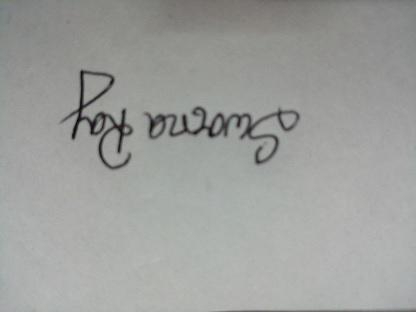 Swarna Roy